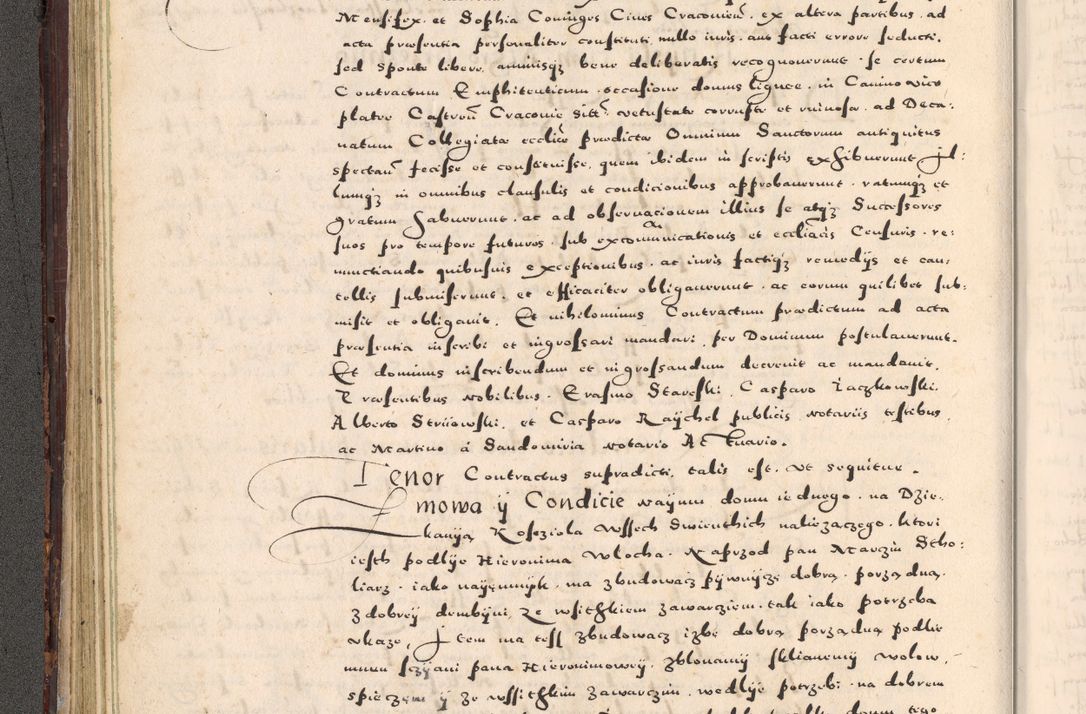 Mensifex. et Sophia Coniuges Ciues Cracouien. ex altera partibus. ad
acta præsentia personaliter constituti, nullo iuris. aut facti errore seducti.
sed sponte libere, animisqz bene deliberatis recognouerunt. se certum
Contractum Emphiteuticum. occasione domus lignee. in Canino vico
platee Castren Cracouie sitt. vetustate corrupte et ruinose. ad Deca:
natum Collegiatæ eccliæ prædictæ Omnium Sanctorum antiquitus
spectan fecisse et constituisse, quem ibidem in scriptis exhibuerunt Il:
lumqz in omnibus clausulis et condicionibus approbauerunt. ratumqz et
gratum habuerunt. ac ad obseruacionem illius se atqz Successores
suos pro tempore futuros sub excommunicationis et eccliacis Censuris. re:
nunctiando quibusuis exceptionibus. ac iuris factiqz remedijs et cau:
tellis submiserunt. et efficaciter obligauerunt. ac eorum quilibet sub:
misit et obligauit. Et nihilominus Contractum prædictum ad acta
præsentia inscribi et ingrossari mandari, per Dominum postulauerunt.
Et dominus inscribendum et ingrossandum decreuit ac mandauit.
Præsentibus nobilibus. Erasmo Stareski. Casparo Łaczkowski.
Alberto Striiowski, et Casparo Raÿchel publicis notariis testibus
ac Martino á Sandomiria notario Actuario.
Tenor Contractus supradicti, talis est. vt sequitur.
mowa ÿ Condicie waÿmu domu iednego. na Dzie:
kanÿa Kosczioła Wssech Swienthich nalezaczego. ktori
iesth podlÿe Hieronima Włocha. Naprzod pan Marczin Stho:
liarz. iako naÿemnÿk. ma zbudowacz pÿwnÿcze dobrą. porządną.
z dobreÿ drembÿni, ze wsithkiem zawarcziem. tak iako potrzeba
vkaze, Item ma tesz zbudowacz izbe dobrą porządną podlie
muru scziani pana Hieronimoweÿ. z błonamÿ sklianemÿ wołow,
spieczem ÿ ze wssithkim zawarczim. wedlÿe potrzebi. na dobrem